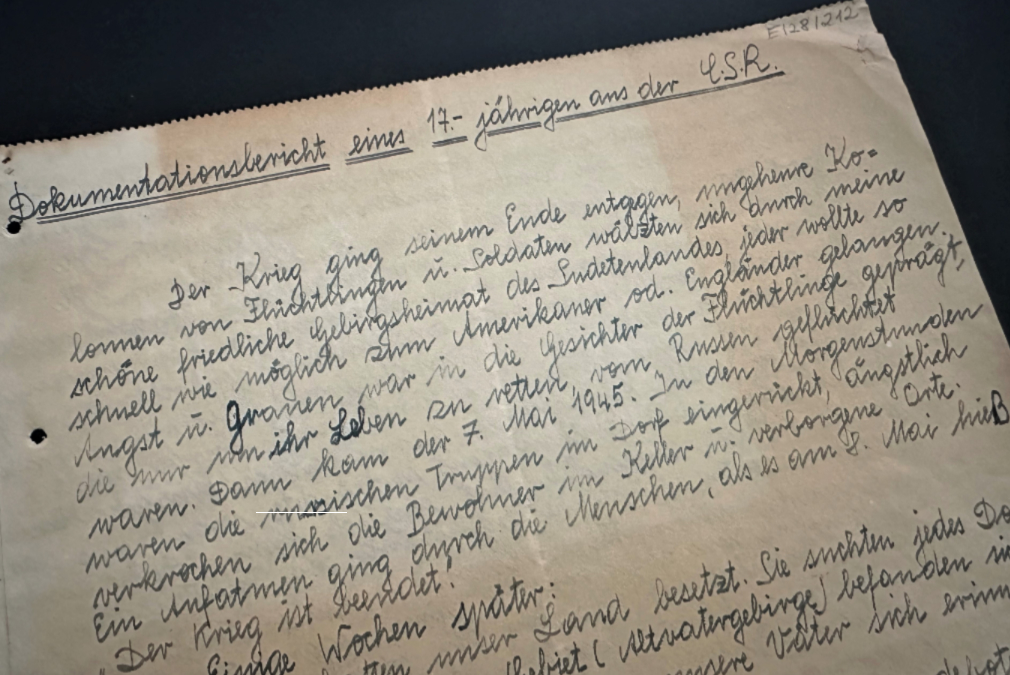 E1281212
Dokumentationsbericht eines 17.- jährigen aus der Č.S.R.
Der Krieg ging seinem Ende entgegen, ungeheure Ko=
lonnen von Flüchtlingen ü. Soldaten wälzten sich durch meine
schöne friedliche Gebirgsheimat des Sudetenlandes, jeder wollte so
schnell wie möglich zum Amerikaner od. Engländer gelangen.
Angst ü. Grauen war in die Gesichter der Flüchtlinge geprägt,
die nur um ihr Leben zu retten vom Russen geflüchtet
waren. Dann kam der 7. Mai 1945. In den Morgenstunden
waren die russischen Truppen im Dorf eingerückt, ängstlich
verkrochen sich die Bewohner im Keller ü. verborgene Orte.
Ein Aufatmen ging durch die Menschen, als es am 8. Mai hieß
"Der Krieg ist beendet!"
Einige Wochen später:
unser Land besetzt. Sie suchten jedes Do
Gebiet (Altvatergebirge) befanden
unsere Väter sich